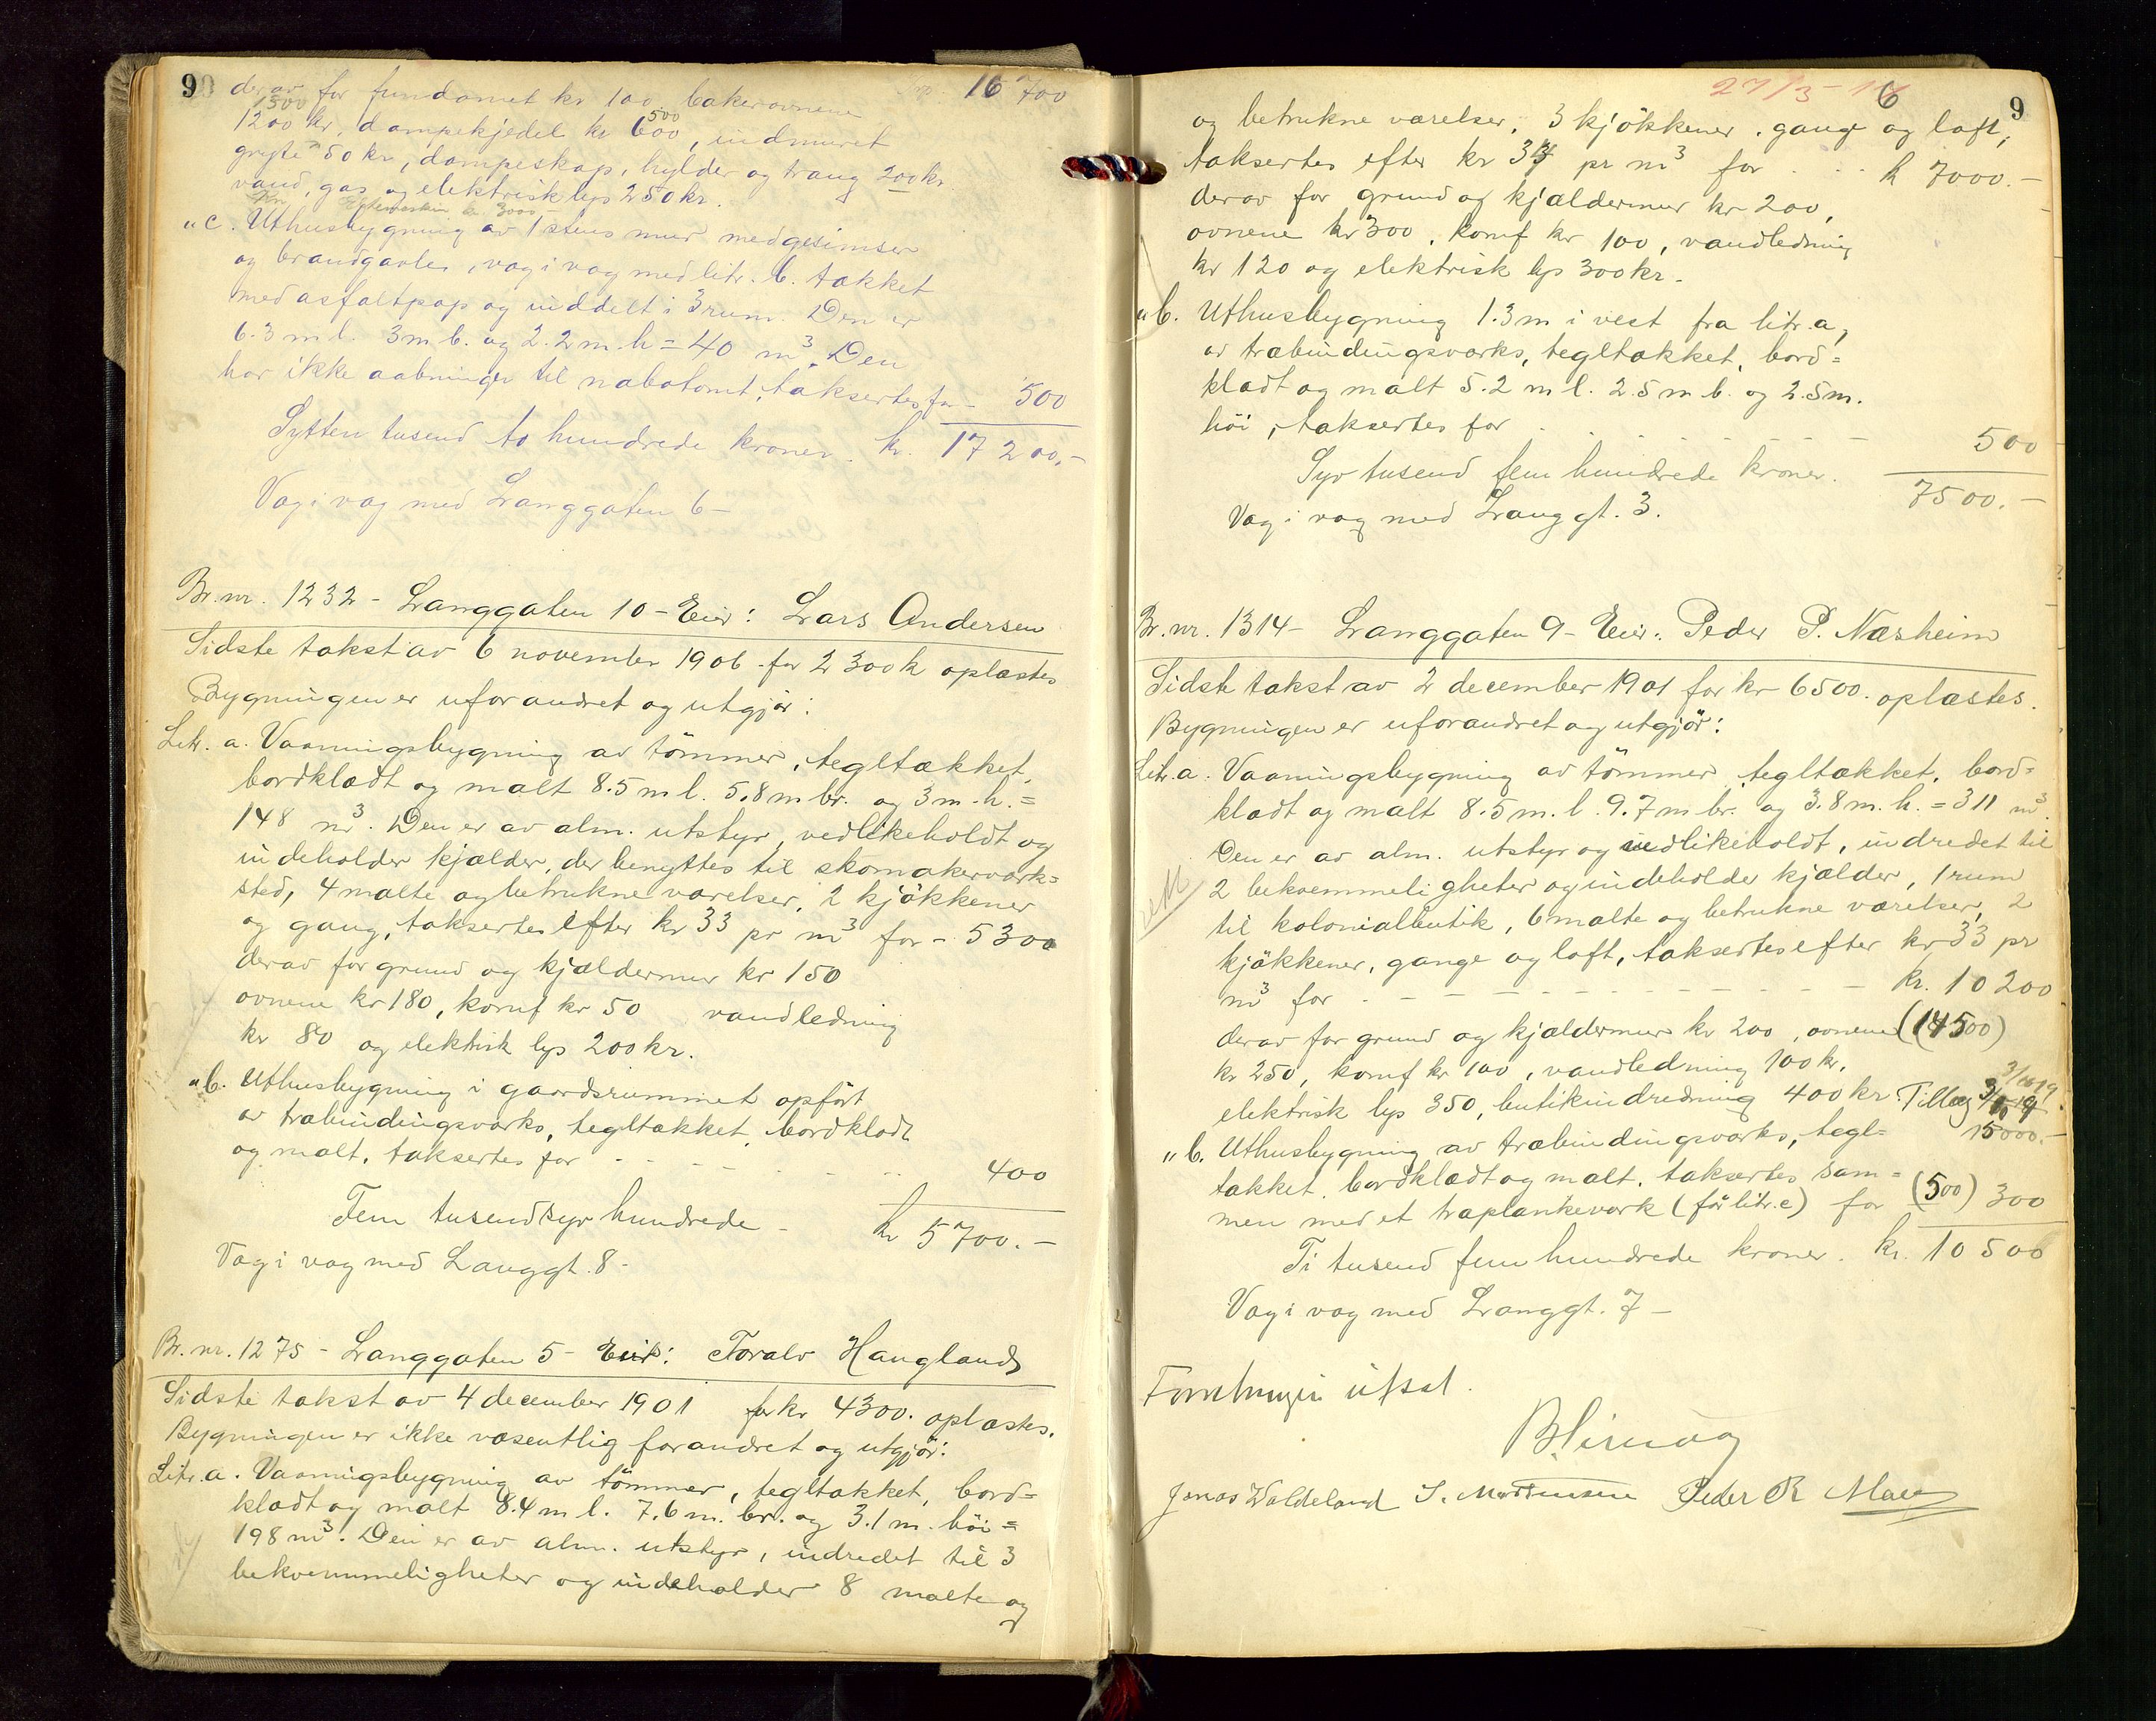 9
derav for fundamet kr 100. bakerovnene 16 700
1500
1200 kr, dampekjedel kr 600, indmuret
500
gryte 50 kr, dampeskap, hylder og traug 200 kr
vand, gas og elektrisk lys 250 kr.
kr. 3000,-
" c. Uthusbygning av 1 stens mur med gesimser
og brandgavler, væg i væg med litr. b. tækket
med asfaltpap og inddelt i 3 rum. Den er
6.3 m l. 3 m b. og 2.2 m. h = 40 m³. Den
har ikke aabninger til nabotomt, taksertes for - 500
Sytten tusend to hundrede kroner. kr. 17 200.-
Væg i væg med Langgaten 6 -
Br. nr. 1232 - Langgaten 10 - Eier: Lars Andersen
Sidste takst av 6 november 1906 for 2 300 k oplæstes
Bygningen er uforandret og utgjør:
Litr. a. Vaaningsbygning av tömmer, tegltækket,
bordklædt og malt 8.5 m l. 5.8 m br. og 3 m. h. =
148 m³. Den er av alm. utstyr, vedlikeholdt og
indeholder kjælder, der benyttes til skomakerverk=
sted, 4 malte og betrukne værelser, 2 kjökkener
og gang, taksertes efter kr 33 pr m³ for - 5300
derav for grund og kjældermur kr 150
ovnene kr 180, komf kr 50 vandledning
kr 80 og elektrisk lys 200 kr.
" b. Uthusbygning i gaardsrummet opfört
av træbindingsværks, tegltækket, bordklædt
og malt, taksertes for - - - - - - 400
Fem tusend syv hundrede - kr 5 700.-
Væg i væg med Langgt. 8 -
Br. nr. 1275 - Langgaten 5 - Eier: Toralv Hauglands
Sidste takst av 4 december 1901 for kr 4300. oplæstes.
Bygningen er ikke væsentlig forandret og utgjör:
Litr. a. Vaaningsbygning av tömmer, tegltækket, bord=
klædt og malt 8.4 m l. 7.6 m. br. og 3.1 m. höi =
198 m³. Den er av alm. utstyr, indredet til 3
bekvemmeligheter og indeholder 8 malte og
27/3-
6
9
og betrukne værelser, 3 kjökkener, gang og loft,
taksertes efter kr 34 pr m³ for . . . k 7000.-
derav for grund og kjældermur kr 200,
ovnene kr 300, komf kr 100, vandledning
kr 120 og elektrisk lys 300 kr.
" b. Uthusbygning 1.3 m i vest fra litr. a,
av træbindingsværks, tegltækket, bord=
klædt og malt 5.2 m l. 2.5 m b. og 2.5 m.
höi, taksertes for - - - - - - 500
Syv tusend fem hundrede kroner. 7500.-
Væg i væg med Langgt. 3.
Br. nr. 1314 - Langgaten 9 - Eier: Peder P. Næsheim
Sidste takst av 2 december 1901 for kr 6500. oplæstes.
Bygningen er uforandret og utgjör:
Litr. a. Vaaningsbygning av tömmer, tegltækket, bord=
klædt og malt 8.5 m. l. 9.7 m br. og 3.8 m. h. = 311 m³.
Den er av alm. utstyr og vedlikeholdt, indredet til
2 bekvemmeligheter og indeholder kjælder, 1 rum
til kolonialbutik, 6 malte og betrukne værelser, 2
kjökkener, gange og loft, taksertes efter kr 33 pr
m³ for - - - - - - kr. 10 200
derav for grund og kjældermur kr 200, ovnene (14500)
kr 250, komf kr 100, vandledning 100 kr.
elektrisk lys 350, butikindredning 400 kr. Tillæg
15000.-
" b. Uthusbygning av træbindingsværks, tegl=
tækket, bordklædt og malt, taksertes sam=
men med et træplankeværk (för litr. c) for (500) 300
Ti tusend fem hundrede kroner. kr. 10 500
Væg i væg med Langgt. 7 -
Forretningen utsat.
Jonas Waldeland S. Mortensen Peder R